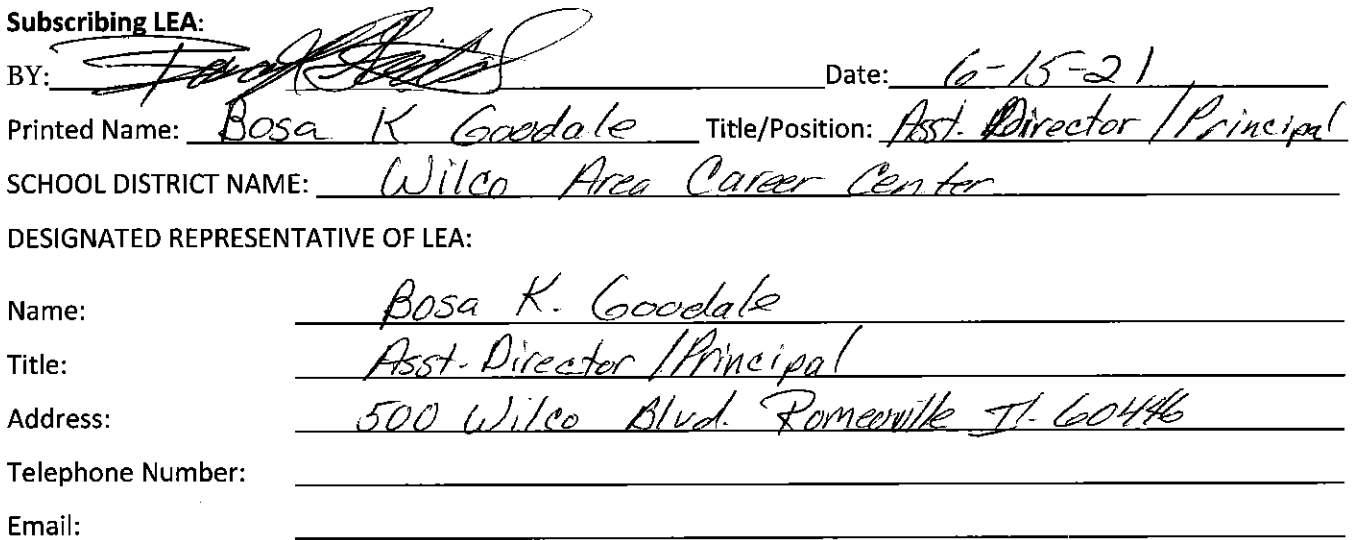 Subscribing LEA:
BY: Date: 6-15-21
Printed Name: Bosa K Goodale Title/Position: Asst. Director / Principal
SCHOOL DISTRICT NAME: Wilco Area Career Center
DESIGNATED REPRESENTATIVE OF LEA:
Name: Bosa K. Goodale
Title: Asst. Director / Principal
Address: 500 Wilco Blvd. Romeoville Il. 60446
Telephone Number:
Email: